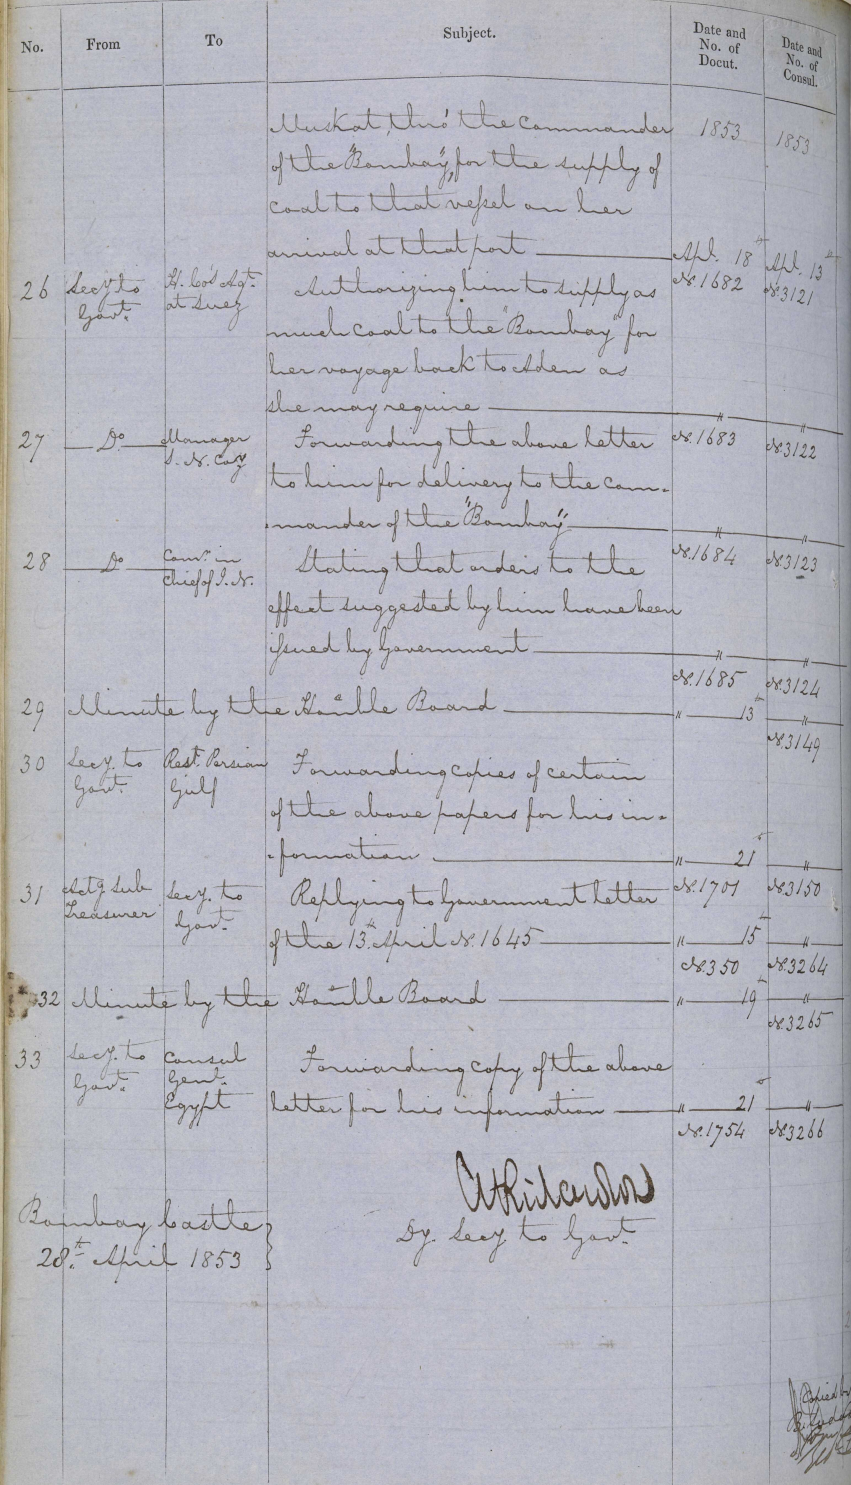 No. From To Subject. Date and No. of Docut. Date and No. of Consul.
Muskat, thro' the Commander 1853 1853
of the "Bombay", for the supply of
coal to that vessel on her
arrival at that port Apl. 18th Apl. 13th
26 Secy. to Govt. H. Co's Agt. at Suez Authorizing him to supply as No. 1682 No. 3121
much coal to the "Bombay" for
her voyage back to Aden as
she may require " "
27 Do. Manager S. N. Coy Forwarding the above letter No. 1683 No. 3122
to him for delivery to the Com-
-mander of the "Bombay" " "
28 Do. Comr. in Chief of I. N. Stating that orders to the No. 1684 No. 3123
effect suggested by him have been
issued by Government " "
No. 1685 No. 3124
29 Minute by the Honble Board " 13th "
No. 3149
30 Secy. to Govt. Rest. Persian Gulf Forwarding copies of certain
of the above papers for his in-
-formation " 21st "
31 Actg Sub Treasurer Secy. to Govt. Replying to Government letter No. 1701 No. 3150
of the 13th. April No. 1645 " 15th "
No. 350 No. 3264
32 Minute by the Honble Board " 19th "
No. 3265
33 Secy. to Govt. Consul Genl. Egypt Forwarding copy of the above
letter for his information " 21st "
No. 1754 No. 3266
Bombay Castle
28th. April 1853
Dy. Secy. to Govt.
Copied by